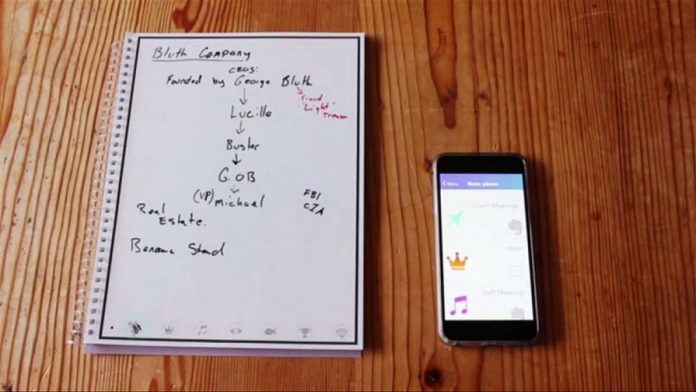 Bluth Company
CEOS:
Founded by George Bluth
Fraud
"Light"
Treason
Lucille
Buster
G.OB
(VP) Michael
FBI
CIA
Real
Estate.
Banana Stand
Menu
Client Meetings
Ideas
Staff Meetings